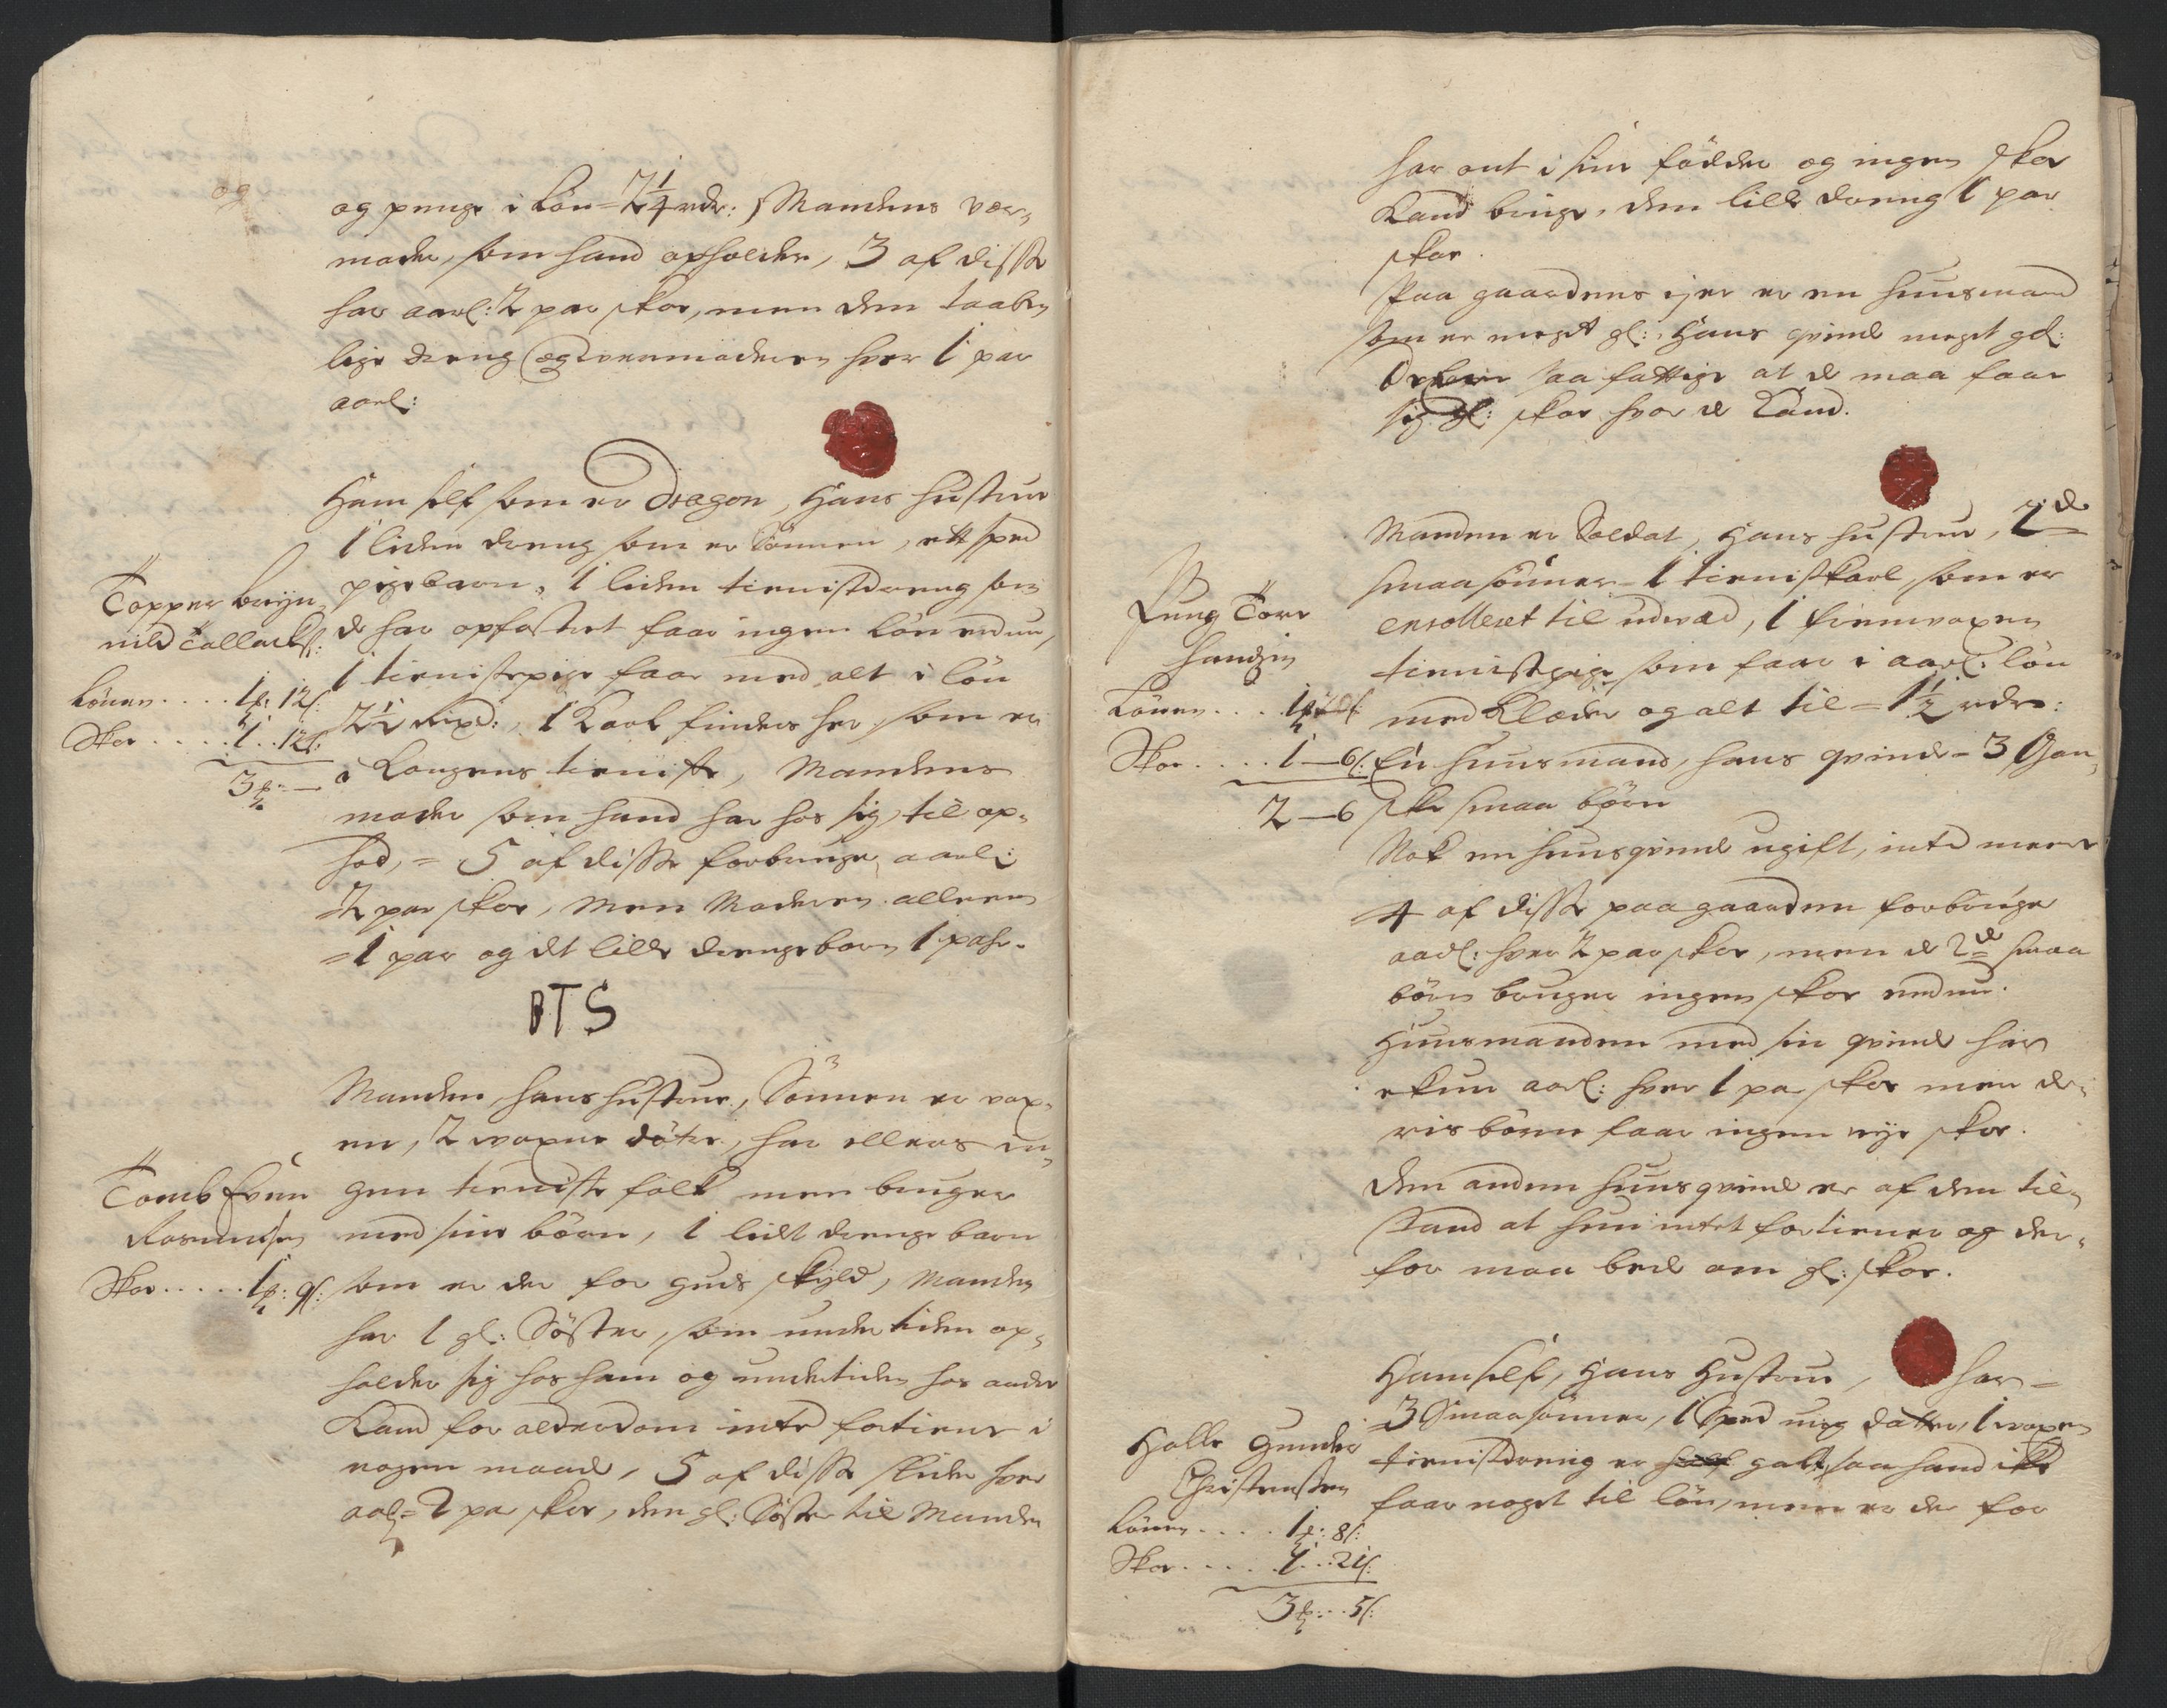 og penge i Løn = 2 1/4 rdr: Mandens vær,,
moder, som hand opholder, 3 af disse
har aarl: 2 par skor, men den taabe,,
lige dreng og værmoderen hver 1 par
aarl:
Ham self som er Dragon, Hans hustrue
1 liden dreng som er Sønnen, ett sped
pigebarn, 1 liden tienistdreng som
de har opfostret faar ingen løn endnu,
1 tienistepige faar med alt i løn
2 1/2 Rixd:, 1 Karl findes her som er
i Kongens tieniste, Mandens
moder som hand har hos sig til op,,
hod, = 5 af disse forbruge aarl:
2 par skor, Men Moderen alleene
= 1 par og det lille drengebarn 1 pahr.
Topper bryn,,
nild Tallachs:
Lønen . . . . 1 12s:
Skor . . . . . 1 . . 12s:
3 –
BTS
Manden, hans hustrue, Sønnen er vox,,
en, 2 woxne døtre, har ellers in,,
gen tieniste folk men bruger
med sine børn, 1 lidt drenge barn
som er der for guds skyld, Manden
har 1 gl: Søster, som under tiden op,,
holder sig hos ham og undertiden hos andre
Kand for alderdom intet fortiene i
nogen maade, 5 af disse slider hver
aarl = 2 par skor, den gl: Søster til Manden
Tomb Even
Rasmusen
Skor . . . . . 1 : 9s:
har ont i sine fødder og ingen skor
Kand bruge, den lille dreng 1 par
skor.
Paa gaardens ejer er en huusmand
som er meget gl:, Hans qvinde meget gl:
De saa fattige at de maa faar
sig gl: skor hvor de Kand.
Manden er Soldat, Hans hustrue, 2de
smaa sønner 1 tienistkarl som er
enrolleret til udræd, 1 woxen
tienistpige som faar i aarl: løn
med Klæder og alt til = 1 1/2 rdr:
En huusmand, hans qvinde = 3 Gan,,
ske smaa børn
Nok en huusqvinde ugift, intet meere
4 af disse paa gaarden forbruge
aarl: hver 2 par skor, men de 2de smaa
børn bruger ingen skor endnu.
Huusmanden med sin qvinde har
ekun aarl: hver 1 par skor men de,,
ris børn faar ingen nye skor.
Den anden huusqvinde er af den til,,
stand at hun intet fortiener og der,,
for maa bede om gl: skor.
Tore
Lønen . . . 1
Skor . . . . 1 – 6s:
2 – 6
Hamself, Hans Hustrue, har =
3 Smaasønner, 1 Sped ung datter, 1 woxen
tienistdreng er galt, saa hand ikke
faar noget til løn, men er der for
Holle Gunder
Christensen
Lønen . . . . 1 : 8s:
Skor . . . . . 1 . . 21s:
3 : . . 5s: